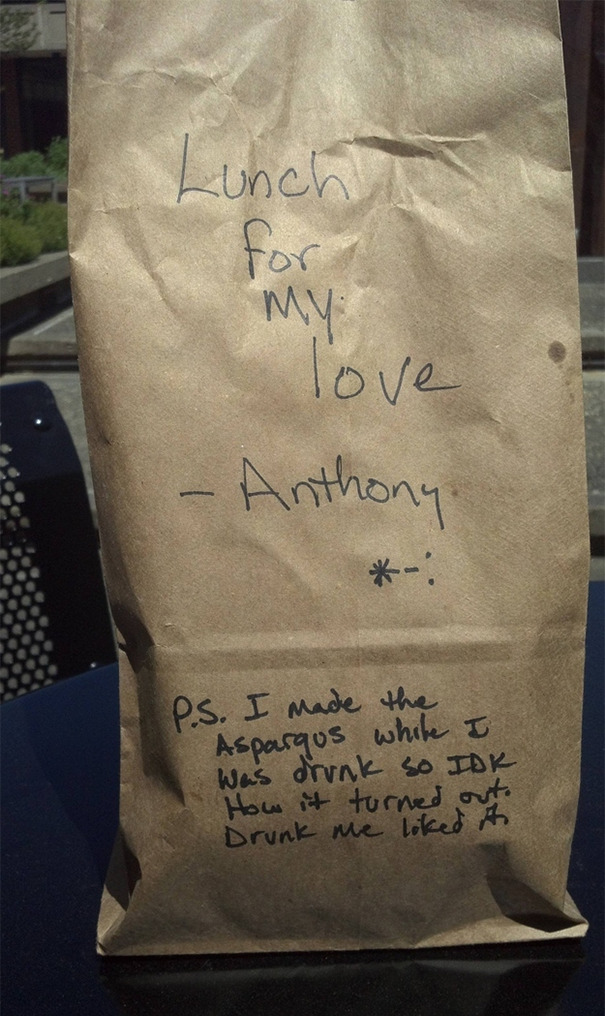 Lunch
for
my
love
- Anthony
*-:
P.S. I made the
Asparagus while I
was drunk so IDK
How it turned out.
Drunk me liked it.